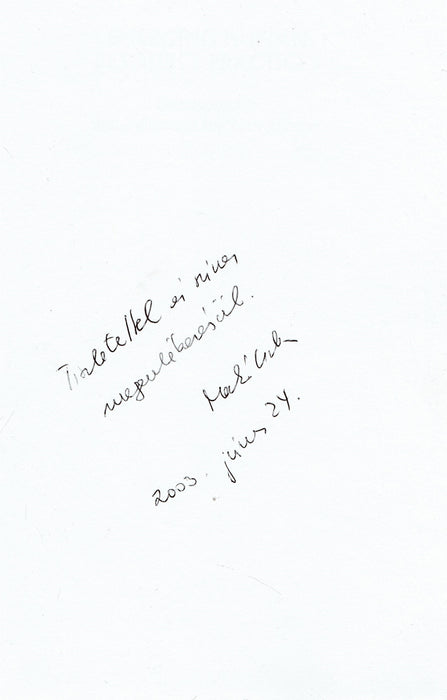 Tisztelettel és szíves
megemlékezésül.
2003. június 24.